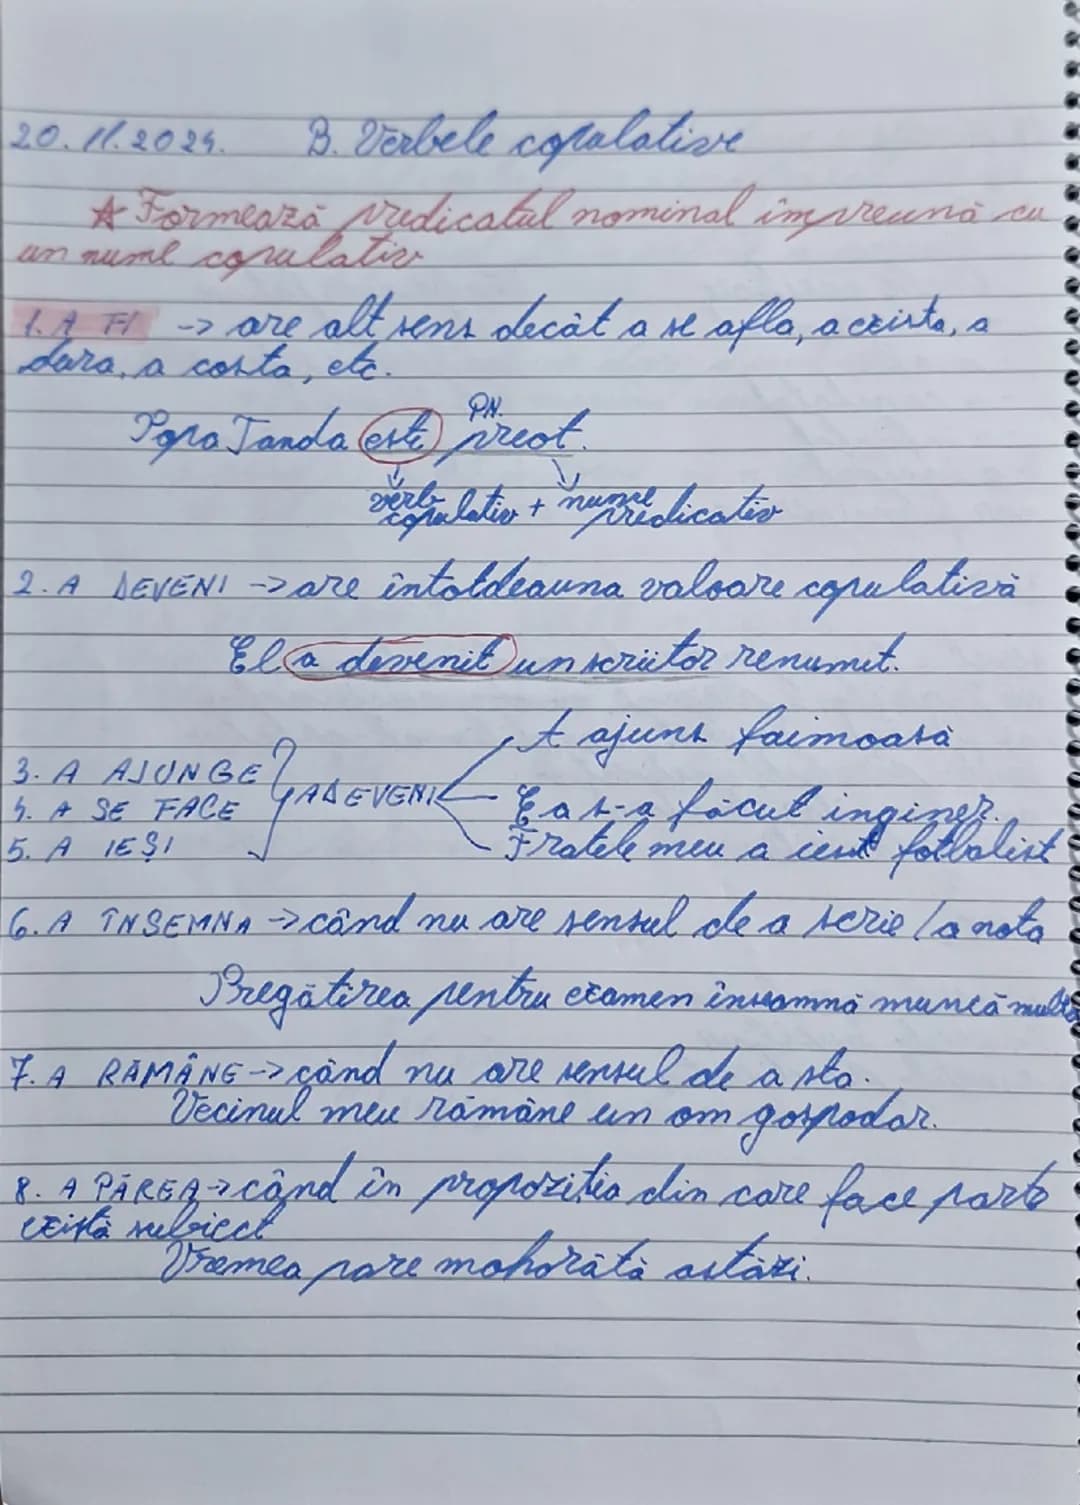 20.11.2024. B. Verbele copulative
☆ Formează predicatul nominal împreună cu
un nume copulativ
1. A FI -> are alt sens decât a se afla, a exista, a
dura, a costa, etc.
PN.
Popa Tanda este preot.
verb copulativ + nume predicativ
2. A DEVENI -> are întotdeauna valoare copulativă
El a devenit un scriitor renumit.
A ajuns faimoasă
3. A AJUNGE
4. A SE FACE } A DEVENI Ea s-a făcut inginer.
5. A IEȘI Fratele meu a ieșit fotbalist
6. A ÎNSEMNA -> când nu are sensul de a scrie / a nota
Pregătirea pentru examen înseamnă muncă multă
7. A RĂMÂNE -> când nu are sensul de a sta.
Vecinul meu rămâne un om gospodar.
8. A PĂREA -> când în propoziția din care face parte
există subiect
Vremea pare mohorâtă astăzi.